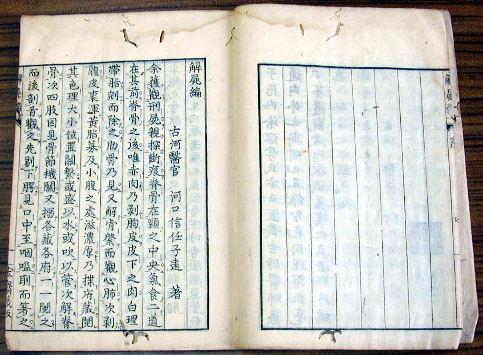 解屍編
古河醫官 河口信任子遠 著
余獲觀刑屍親探斷痕脊骨在頸之中央氣食二道
在其前脊骨之後唯赤肉乃剥胸皮皮下之肉白理
帶脂剜而除之肋骨乃見又解骨祭而觀心肺次剥
腹皮裏運黄脂募及小腹之處滋濃厚乃探府藏閲
其色理大小位置關繫或盛以水或吹以管次解脊
骨次四肢因見骨節機關又搦各藏各府一一閲之
而後剖首觀之先剔下腭見口中至咽嗌耵而箸之